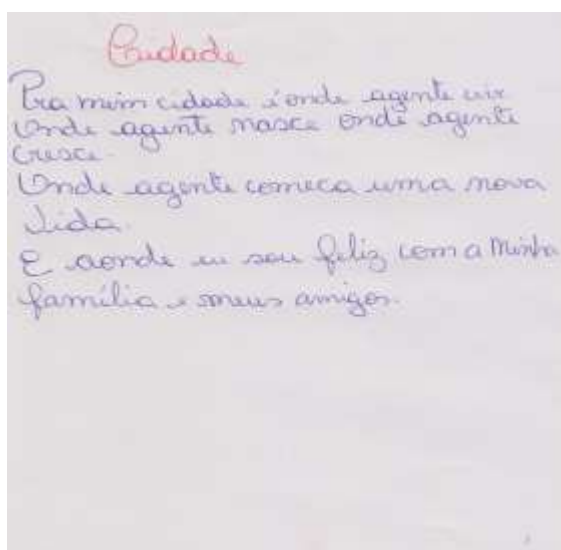 Cidade
Pra mim cidade é onde agente vive
Onde agente nasce onde agente
cresce.
Onde agente comeca uma nova
vida.
E aonde eu sou feliz com a Minha
família e meus amigos.